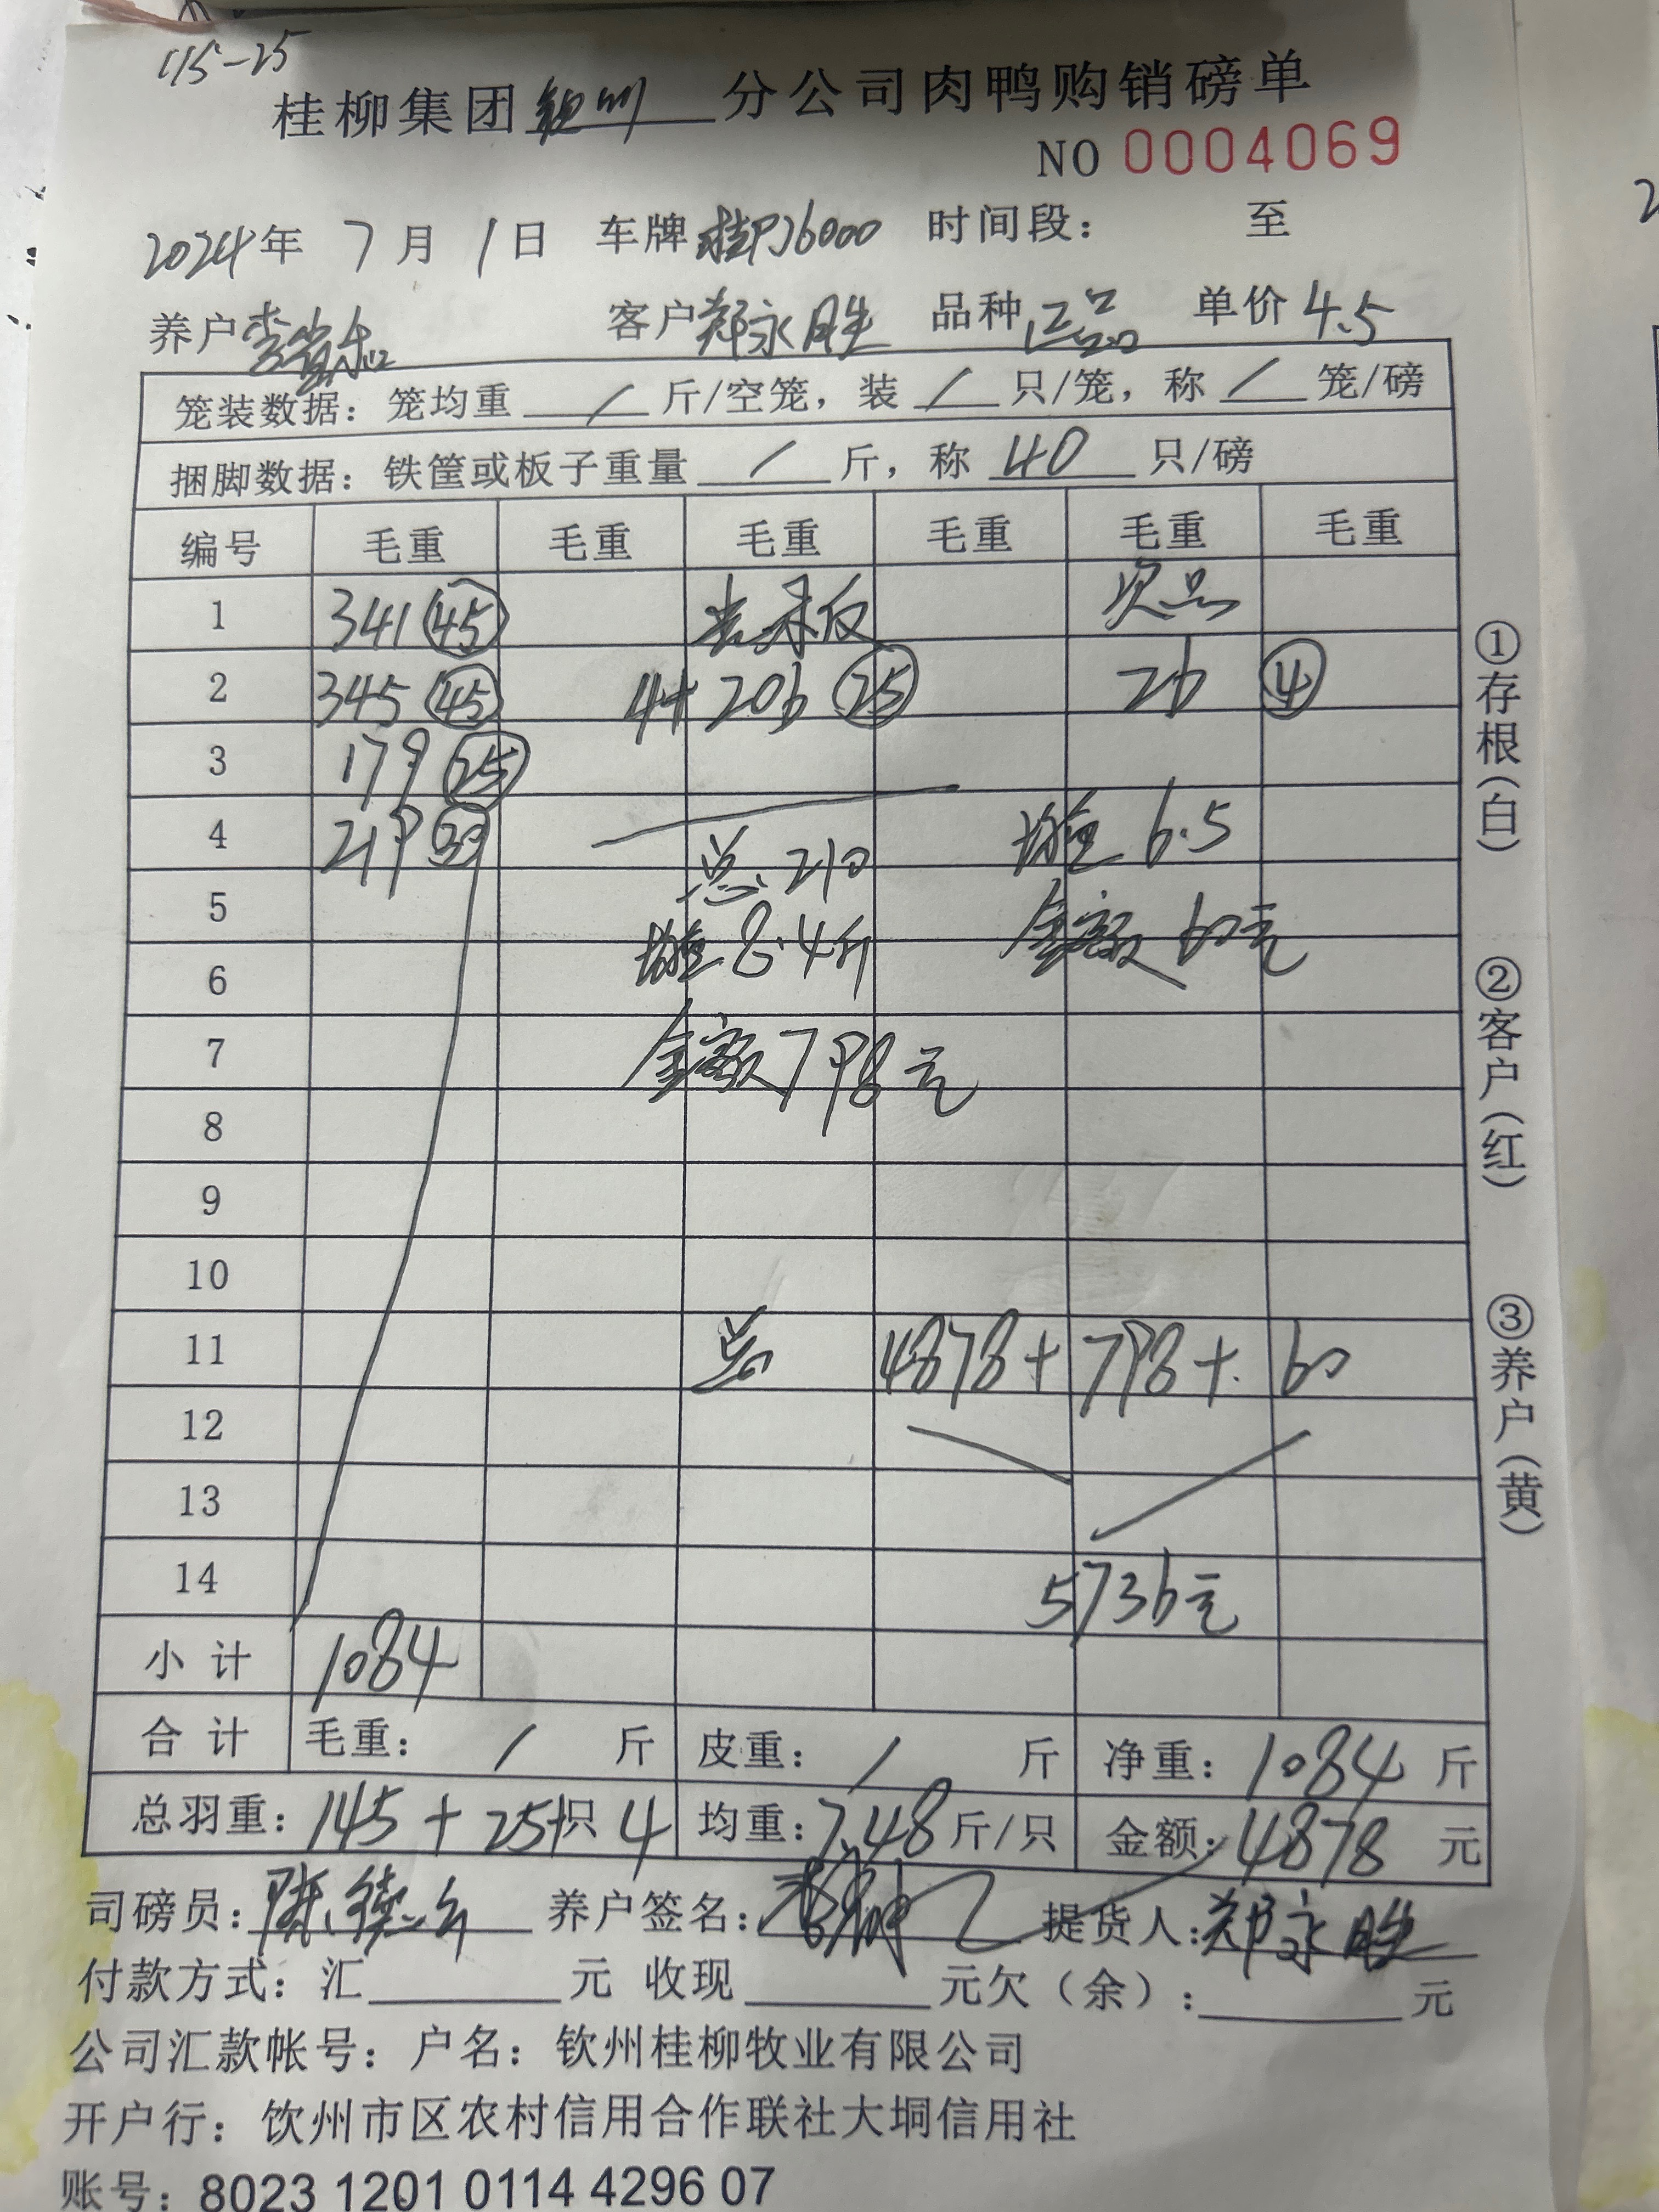 115-25
桂柳集团钦州分公司肉鸭购销磅单
NO 0004069
2024年 7月 1日 车牌桂P26000 时间段： 至
养户 客户郑永胜 品种正品 单价4.5
笼装数据：笼均重 / 斤/空笼，装 / 只/笼，称 / 笼/磅
捆脚数据：铁筐或板子重量 / 斤，称 40 只/磅
编号 毛重 毛重 毛重 毛重 毛重 毛重
1 341 45 次品
2 345 45 4+ 206 25 26 4
3 179 25
4 219 30 总 210 均重 6.5
5 均重 8.4斤 金额 60元
6
7 金额 798元
8
9
10
11 总 4878+ 798+ 60
12
13
14 5736元
小计 1084
合计 毛重： / 斤 皮重： / 斤 净重：1084 斤
总羽重：145+25+只 4 均重：7.48斤/只 金额：4878 元
司磅员： 养户签名： 提货人：郑永胜
付款方式：汇 元 收现 元欠（余）： 元
公司汇款帐号：户名：钦州桂柳牧业有限公司
开户行：饮州市区农村信用合作联社大垌信用社
账号：8023 1201 0114 4296 07
①存根（白）
②客户（红）
③养户（黄）